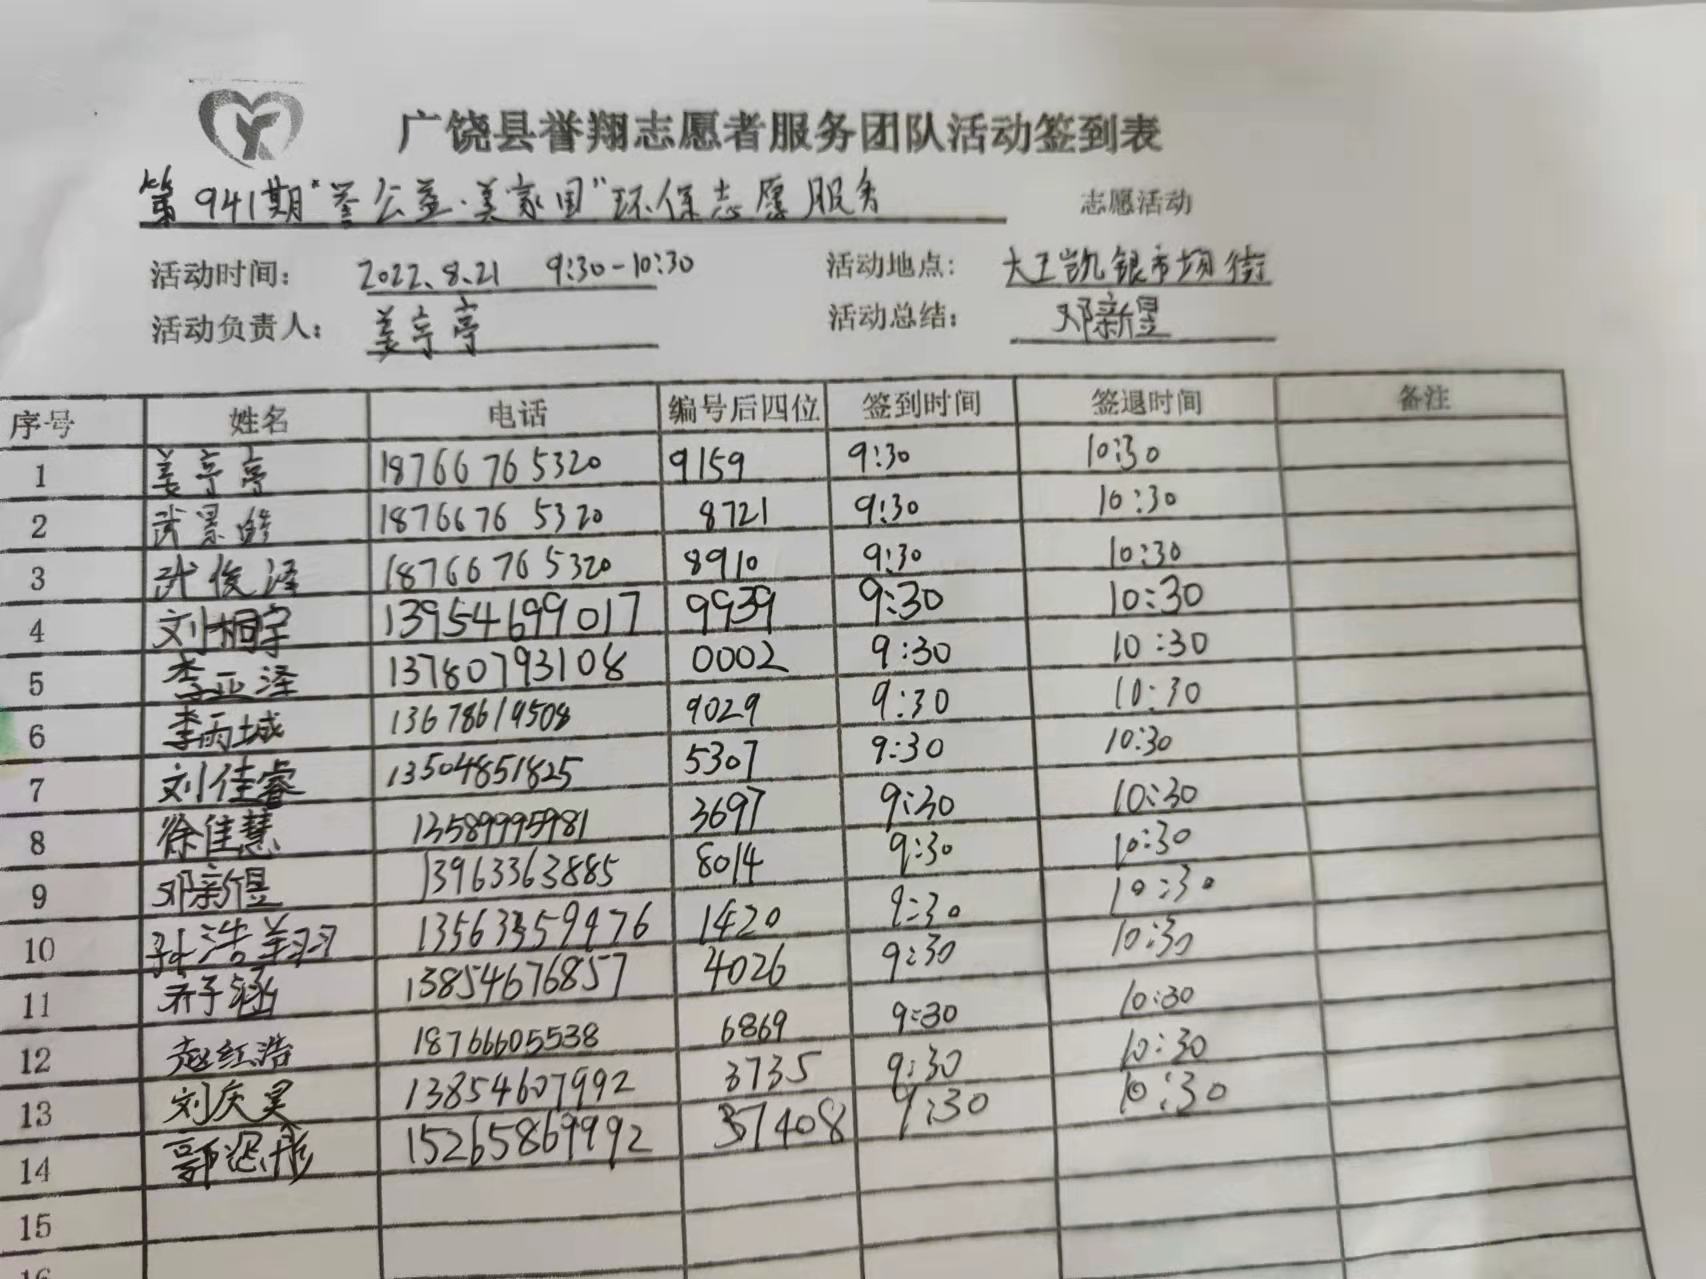 广饶县誉翔志愿者服务团队活动签到表
第941期"誉公益·美家园"环保志愿服务 志愿活动
活动时间： 2022.8.21 9:30-10:30 活动地点： 大王凯银市场街
活动负责人： 姜亭亭 活动总结： 邓新昱
序号 姓名 电话 编号后四位 签到时间 签退时间 备注
1 姜亭亭 18766765320 9159 9:30 10:30
2 武景皓 18766765320 8721 9:30 10:30
3 武俊泽 18766765320 8910 9:30 10:30
4 刘桐宇 13954699017 9939 9:30 10:30
5 李正泽 13780793108 0002 9:30 10:30
6 李雨城 13678619508 9029 9:30 10:30
7 刘佳睿 13504851825 5307 9:30 10:30
8 徐佳慧 13589995981 3697 9:30 10:30
9 邓新昱 13963363885 8014 9:30 10:30
10 孙浩翔 13563359476 1420 9:30 10:30
11 乔子涵 13854676857 4026 9:30 10:30
12 赵红浩 18766605538 6869 9:30 10:30
13 刘庆昊 13854607992 3735 9:30 10:30
14 郭 彤 15265869992 7408 9:30 10:30
15
16